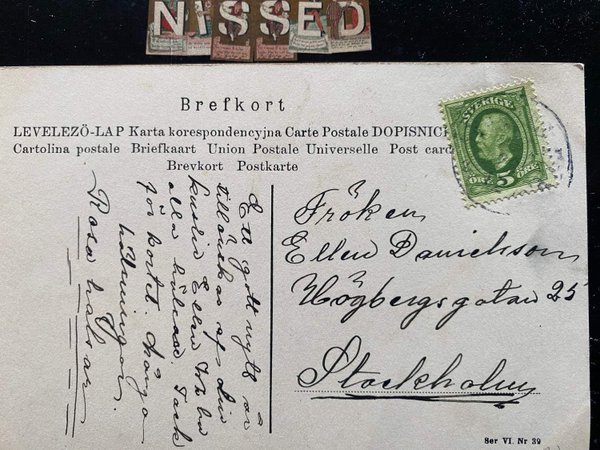 NISSED
Brefkort
LEVELEZÖ-LAP Karta korespondencyjna Carte Postale DOPISNIC
Cartolina postale Briefkaart Union Postale Universelle Post card
Brevkort Postkarte
SVERIGE
5
ÖRE ÖRE
Fröken
Ellen Danielsson
Högbergsgatan 25
Stockholm
Ett gott nytt år
tillönskas af Din
kusin Ellen
alla hälsar. Tack
för kortet. Många
hälsningar.
Rosa
Ser VI. Nr 39